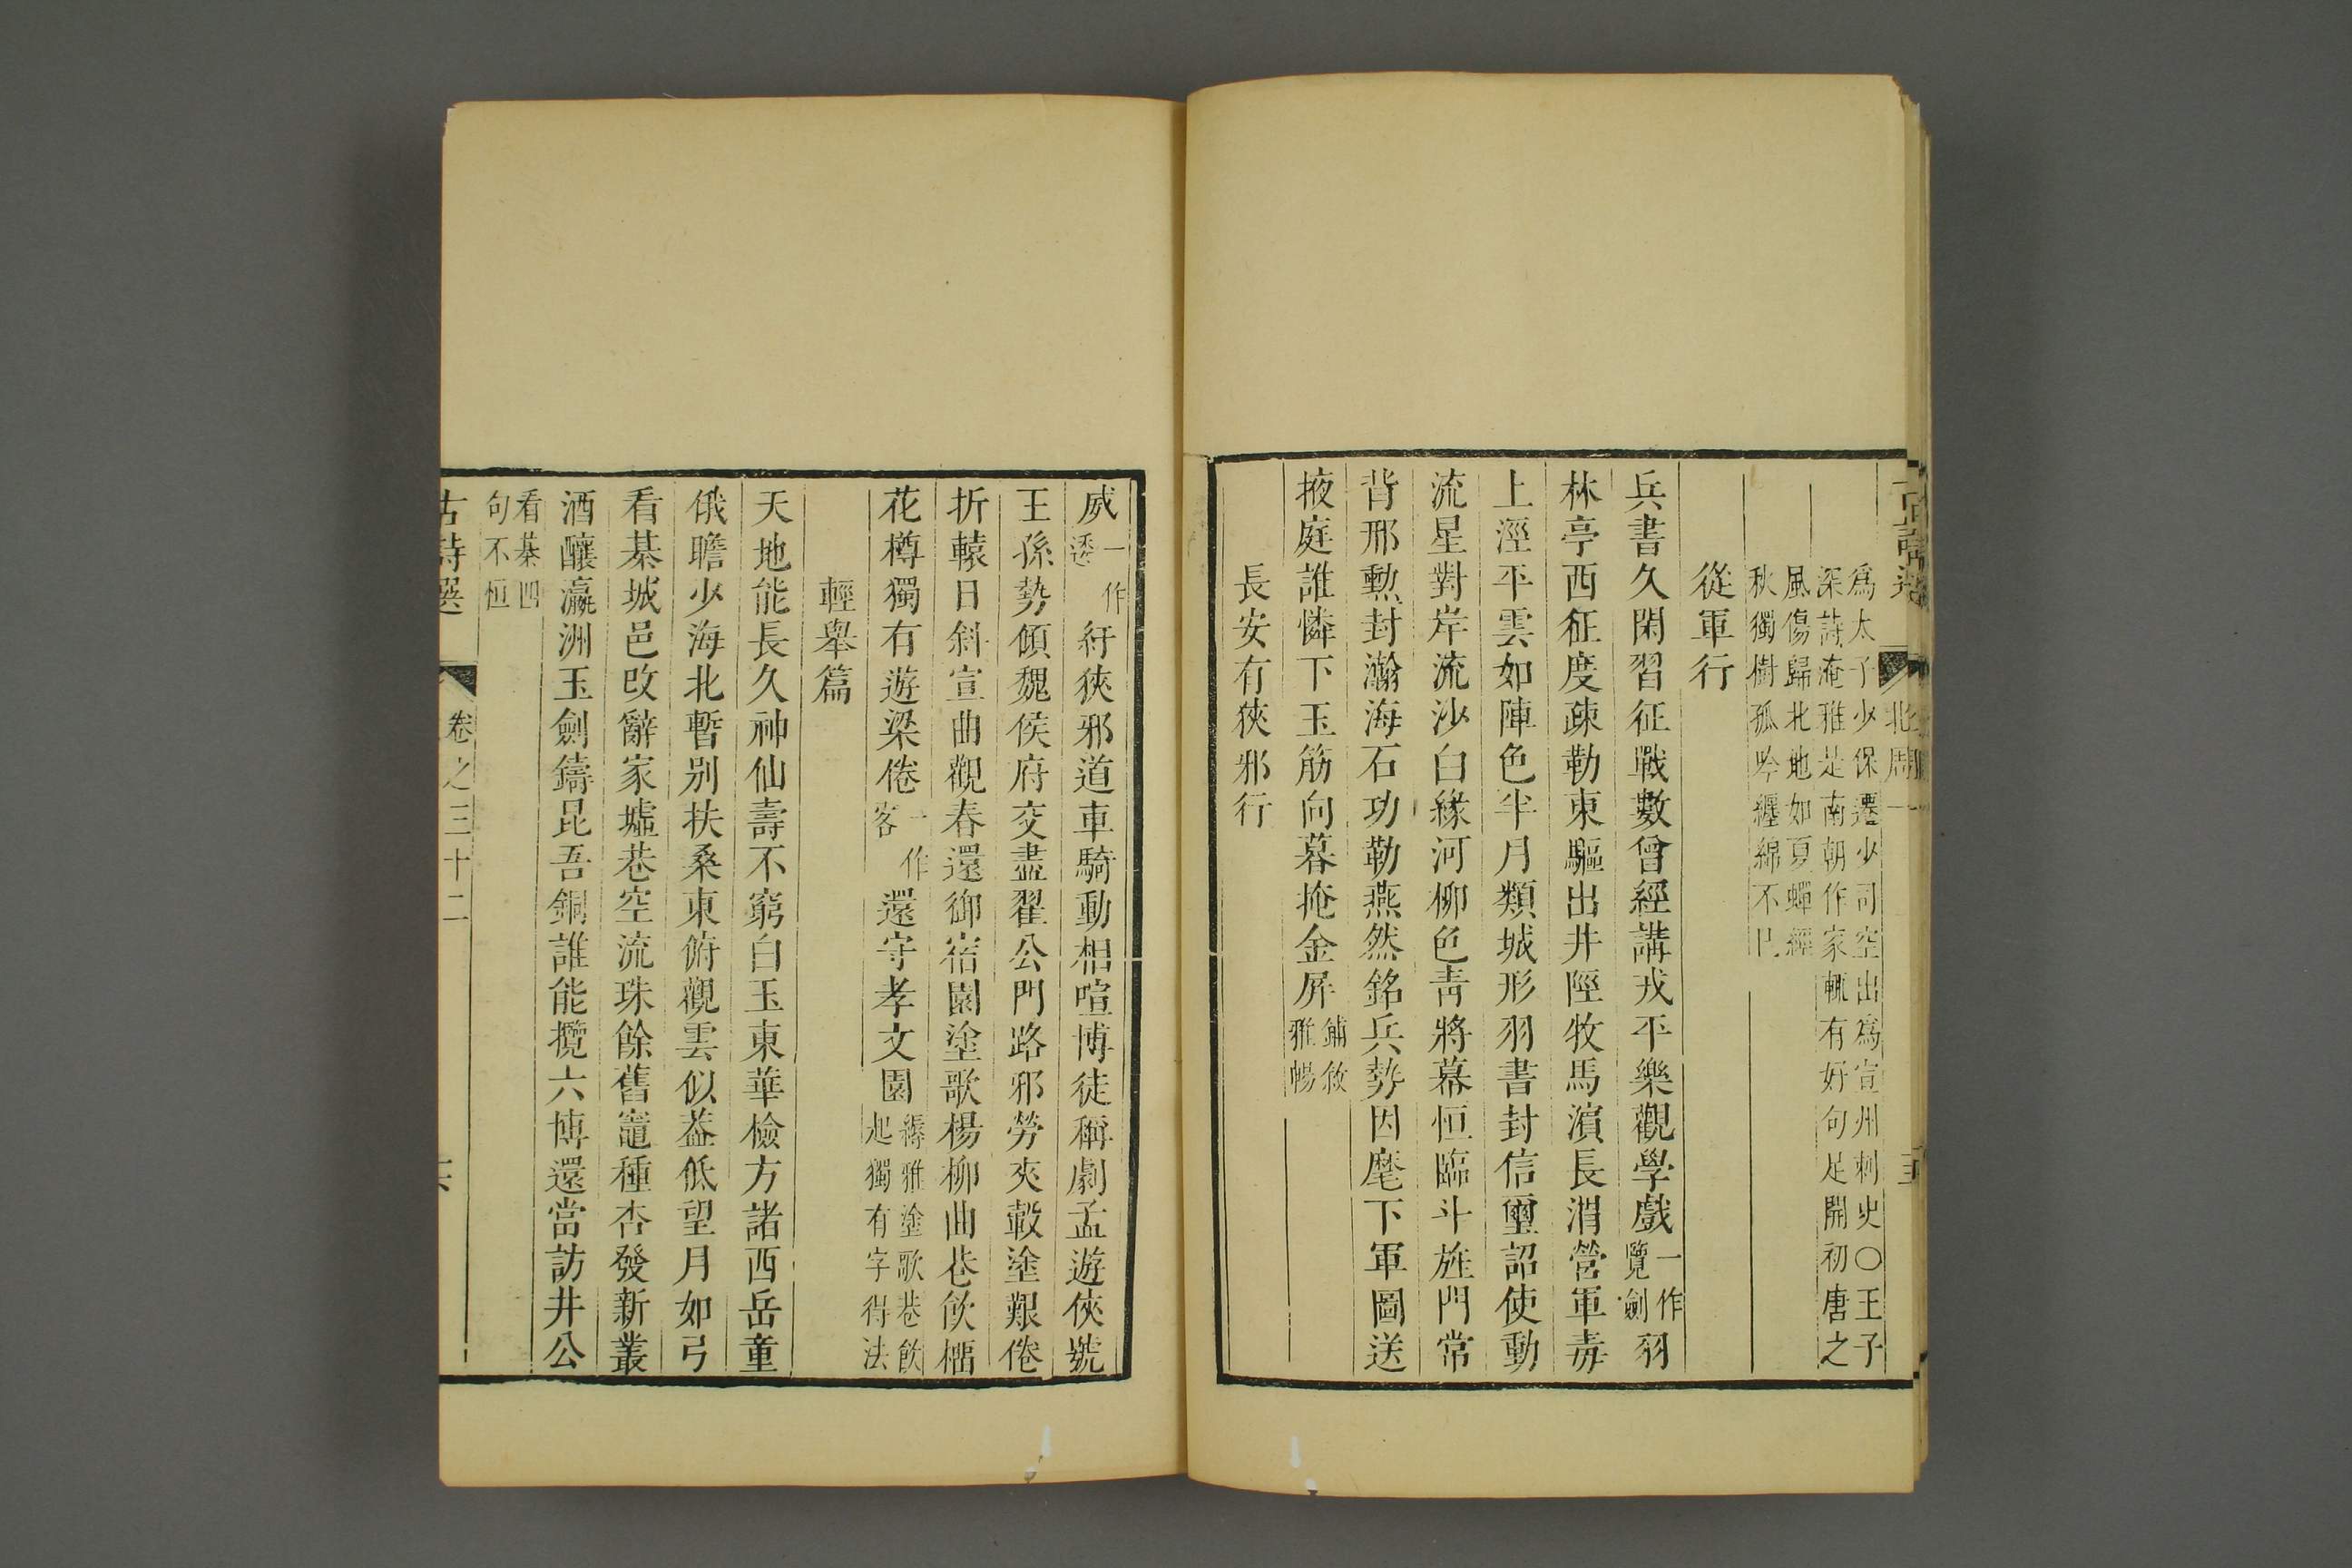 古詩選 北周一
爲太子少保遷少司空出爲宣州刺史○王子
深詩淹雅是南朝作家輒有好句足開初唐之
風傷歸北地如夏蟬經
秋獨樹孤吟纏綿不已
從軍行
兵書久閑習征戰數曾經講戎平樂觀學戲一作覽劍羽
林亭西征度疎勒東驅出井陘牧馬濵長渭營軍毒
上涇平雲如陣色半月類城形羽書封信璽詔使動
流星對岸流沙白緣河柳色青將幕恒臨斗旌門常
背邢勲封瀚海石功勒燕然銘兵勢因麾下軍圖送
掖庭誰憐下玉筋向暮掩金屏鋪敘雅暢
長安有狹邪行
威一作逶紆狹邪道車騎動相喧博徒稱劇孟遊俠號
王孫勢傾魏侯府交盡翟公門路邪勞夾轂塗艱倦
折轅日斜宣曲觀春還御宿園塗歌楊柳曲巷飲榴
花樽獨有遊梁倦一作客還守孝文園縟雅塗歌巷飲起獨有字得法
輕舉篇
天地能長久神仙壽不窮白玉東華檢方諸西岳童
俄瞻少海北暫别扶桑東俯觀雲似葢低望月如弓
看棊城邑改辭家墟巷空流珠餘舊竈種杏發新叢
酒釀瀛洲玉劍鑄昆吾銅誰能攬六博還當訪井公
看棊四
句不恒
古詩選 卷之三十二